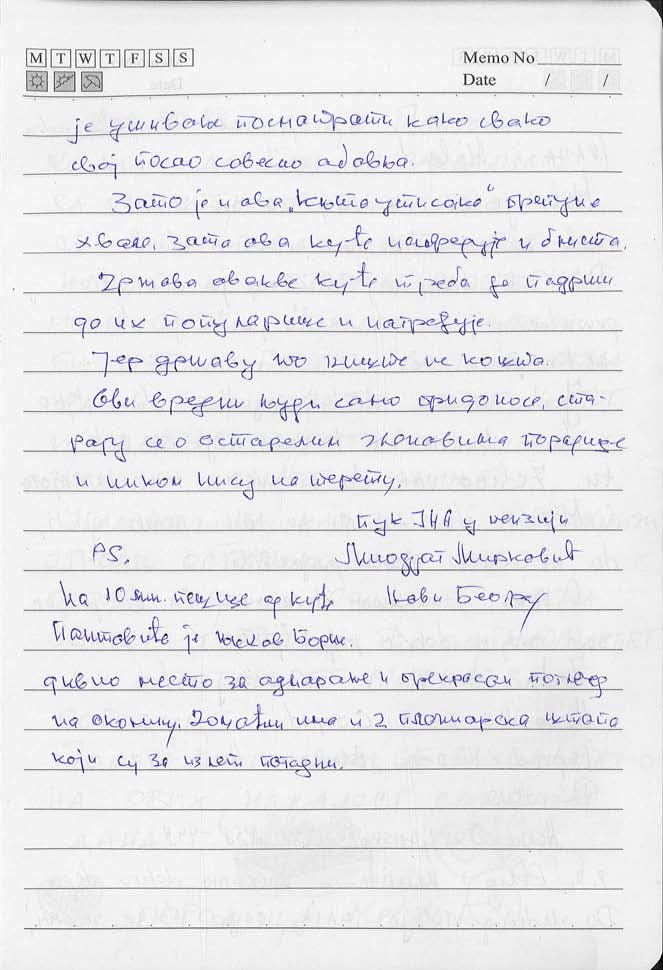 M T W T F S S
Memo No
Date / /
је уживала посматрати како свако
свој посао совесно обавља.
Зато је и ова „Књига утисака“ препуна
хвале. Зато ова кућа напредује и блиста.
Држава овакве куће треба да подржи
да их популарише и награђује.
Јер државу то ништа не кошта.
Ови вредни људи само придоносе, ста-
рају се о остарелим члановима породице
и ником нису на терету.
Пук ЈНА у пензији
PS. Миодраг Мирковић
На 10 мин. пешице од куће Нови Београд
је њихов
дивно место за одмарање и прекрасан поглед
на околину. Домаћин има и 2 планинарска штапа
који су за излет погодни.